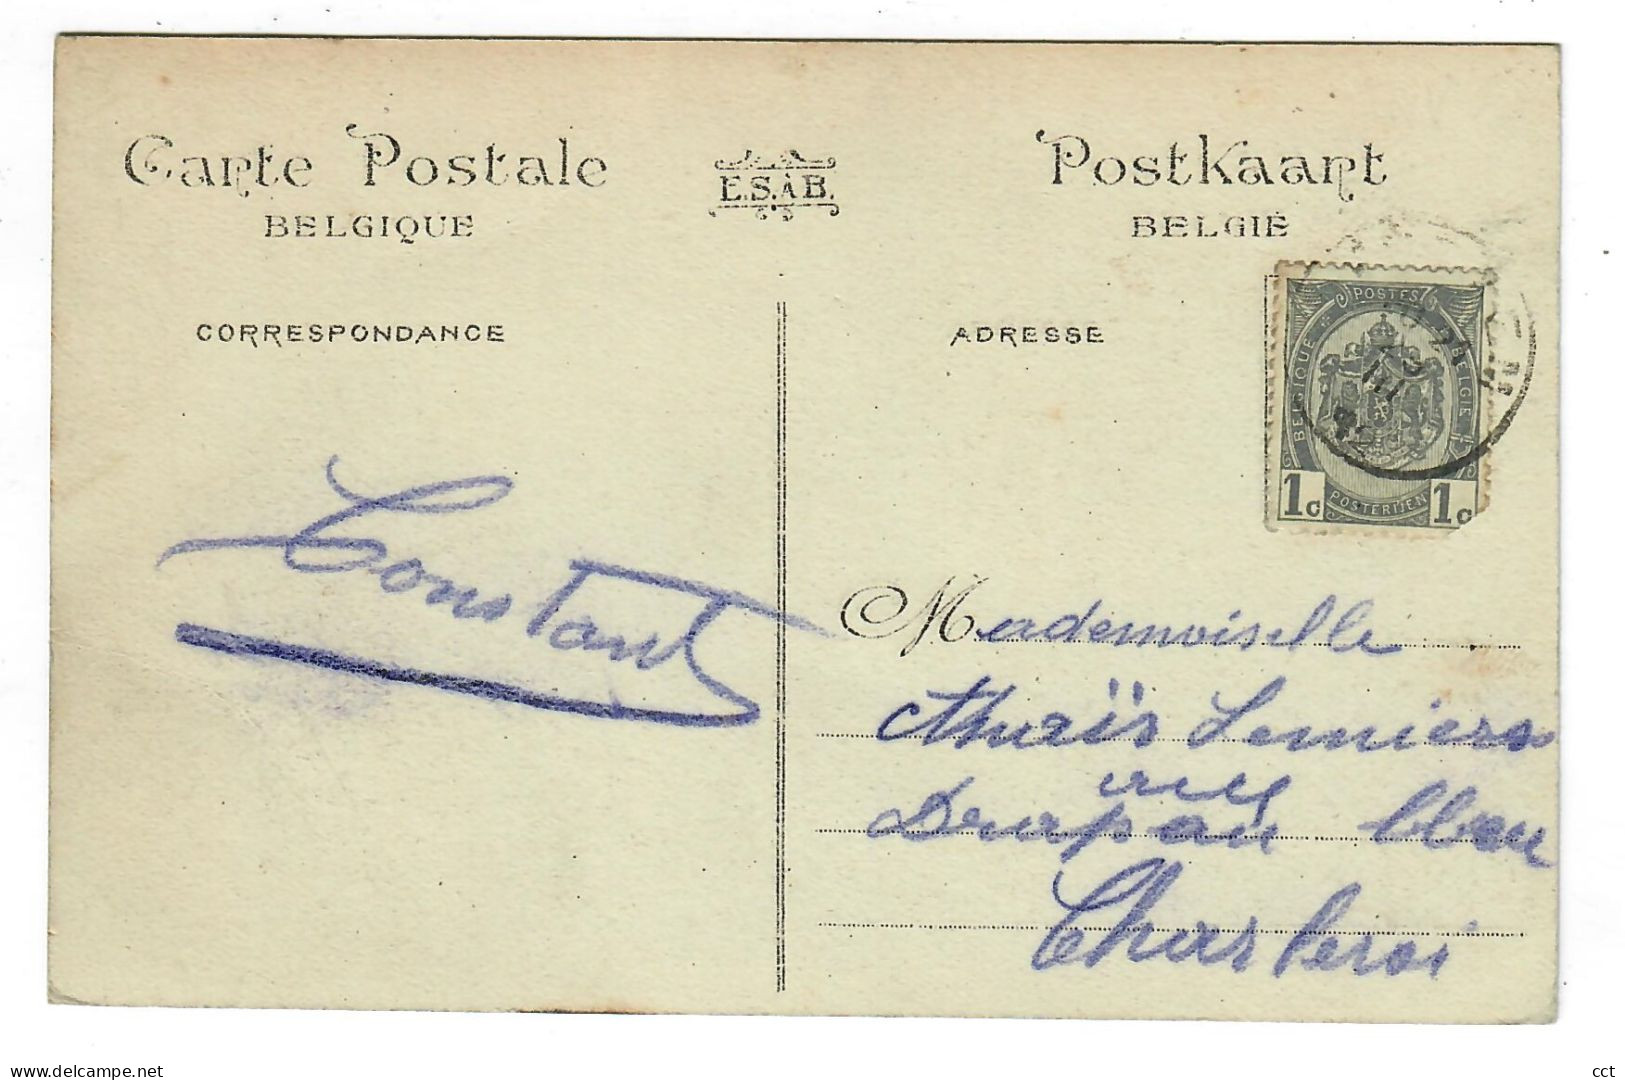 Carte Postale
BELGIQUE
E.S.A B.
Postkaart
BELGIË
CORRESPONDANCE
ADRESSE
POSTES
BELGIQUE
BELGIE
POSTERIJEN
1c 1c
Constant
Mademoiselle
Thaïs
au
Drapau bleu
Charleroi
cct